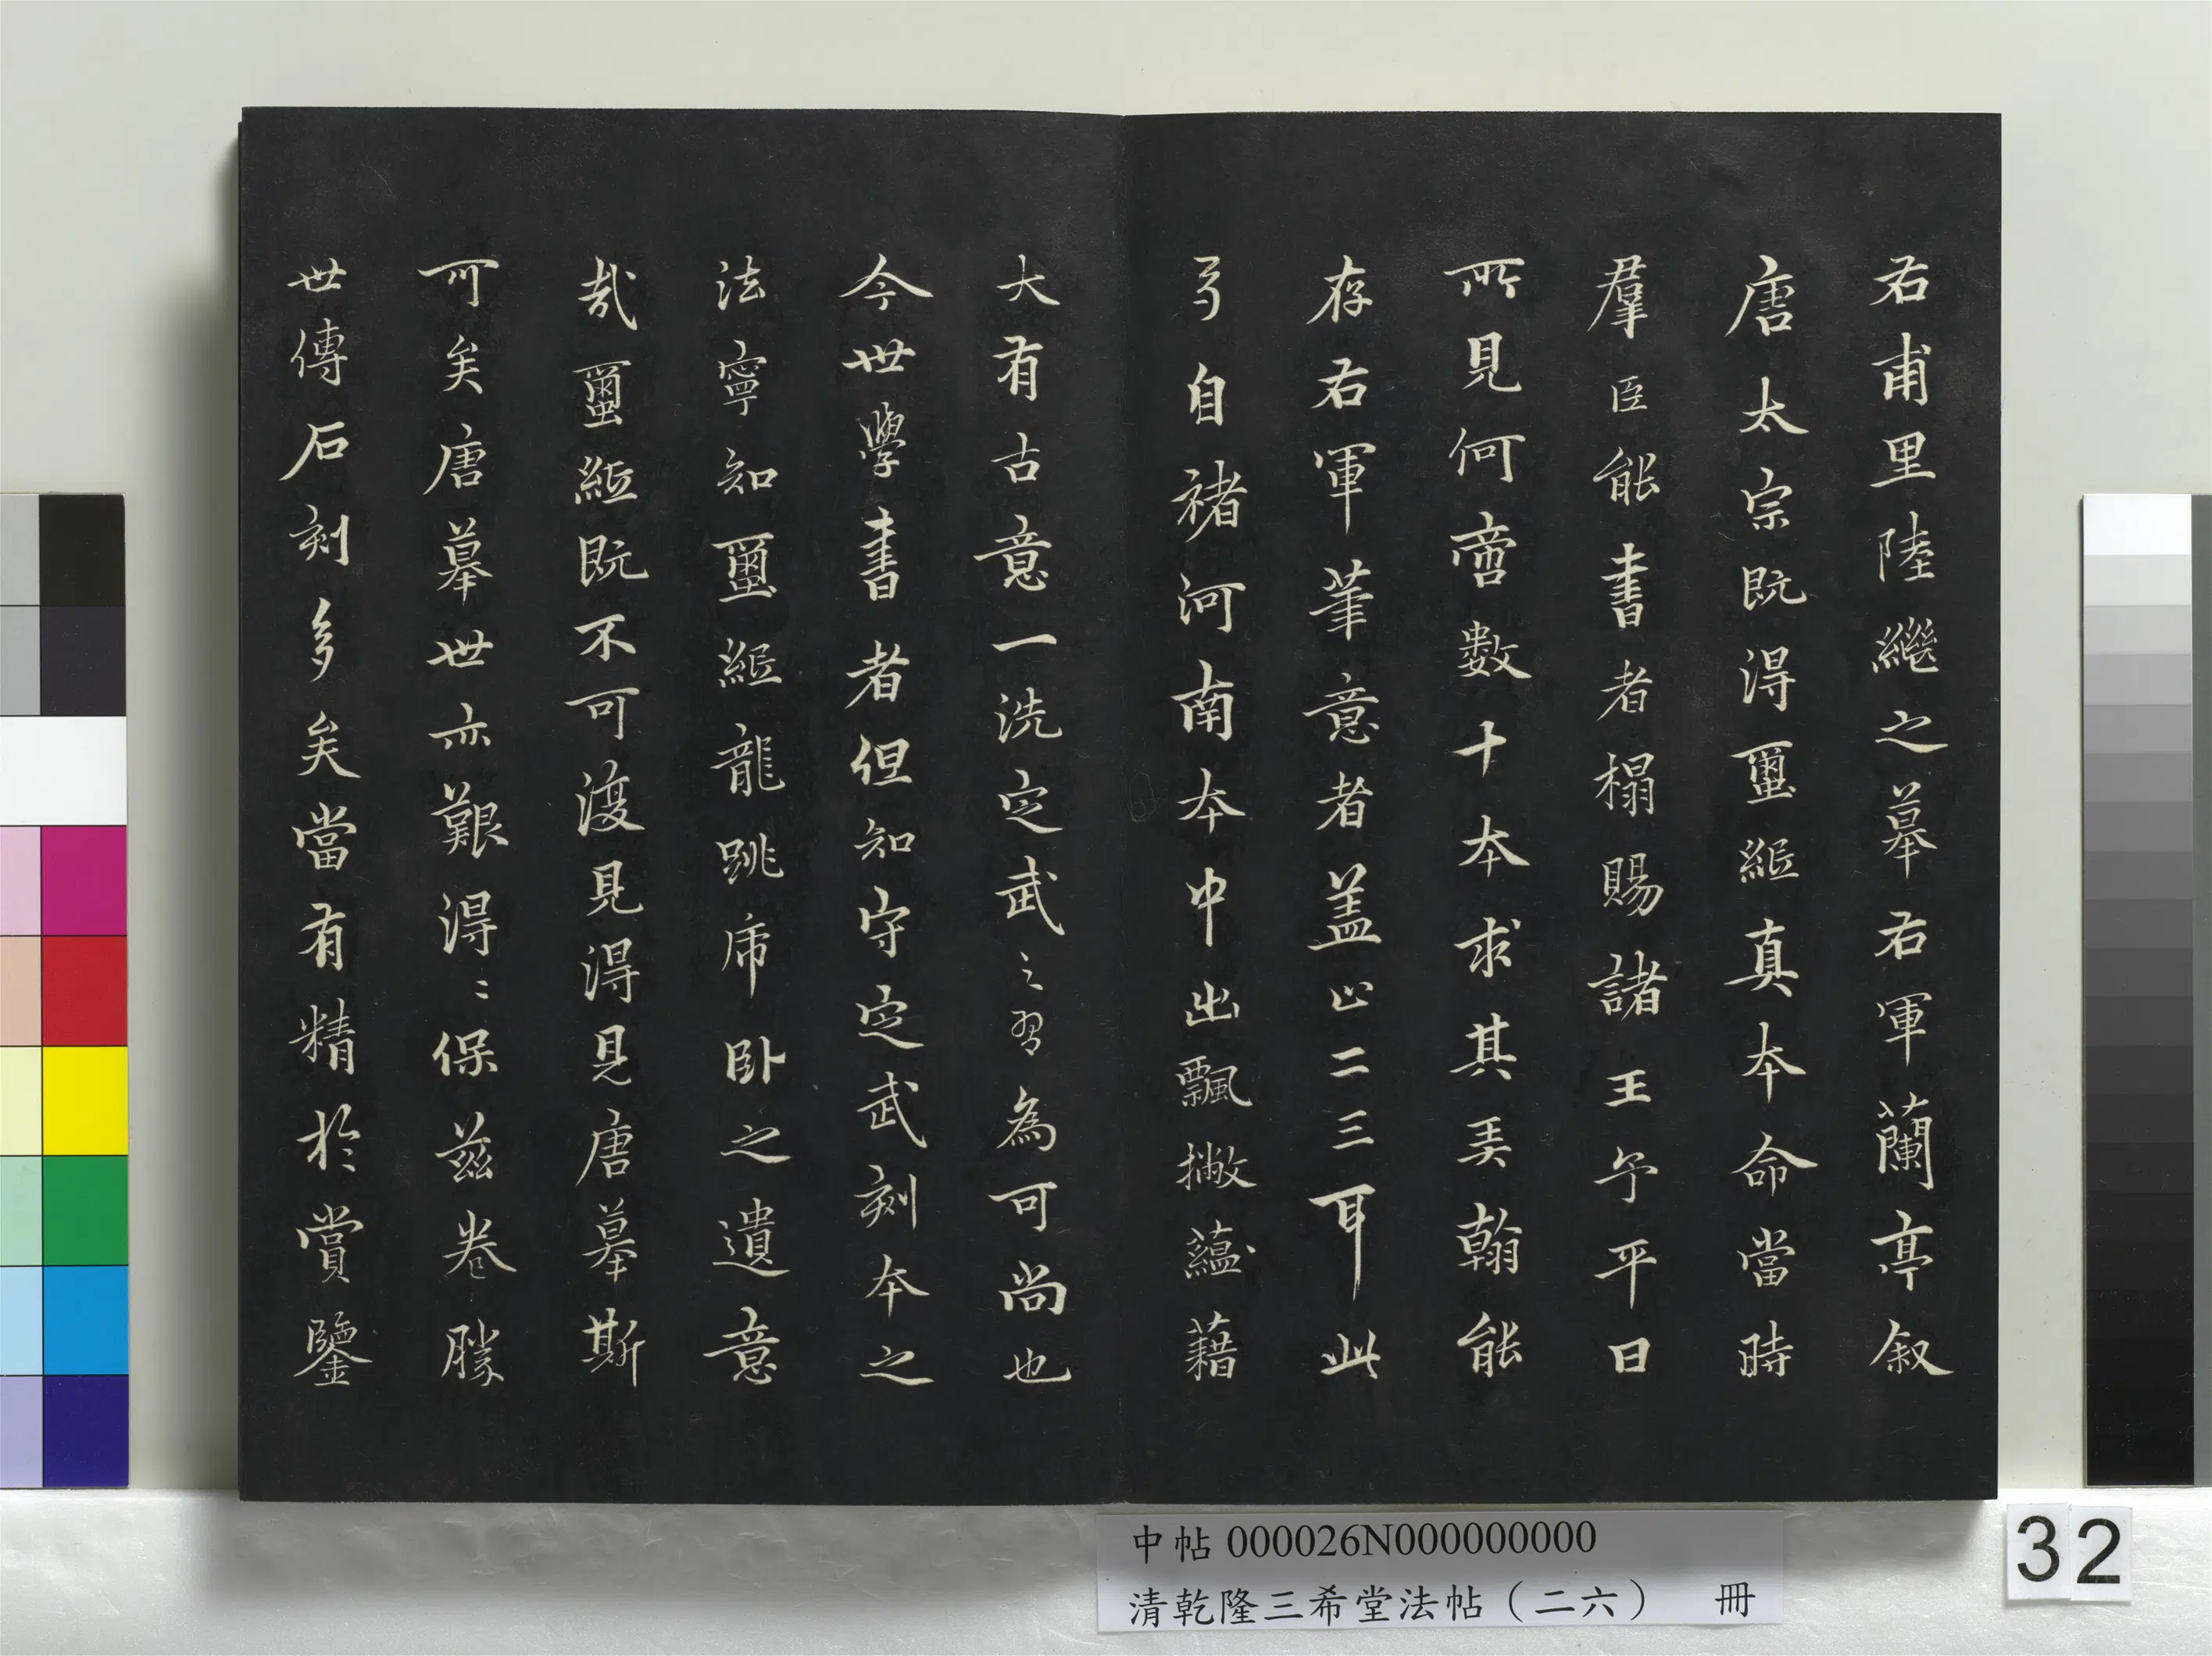 右甫里陸繼之摹右軍蘭亭叙
唐太宗既得璽紙真本命當時
羣臣能書者榻賜諸王予平日
所見何啻數十本求其美翰能
存右軍筆意者盖止二三耳此
弓自褚河南本中出飄撇蘊藉
大有古意一洗定武之習為可尚也
今世學書者但知守定武刻本之
法寧知璽紙龍跳虎卧之遺意
哉璽紙既不可復見得見唐摹斯
可矣唐摹世亦艱得得保兹卷勝
世傳石刻多矣當有精於賞鑒
中帖 000026N000000000
清乾隆三希堂法帖（二六） 冊
32